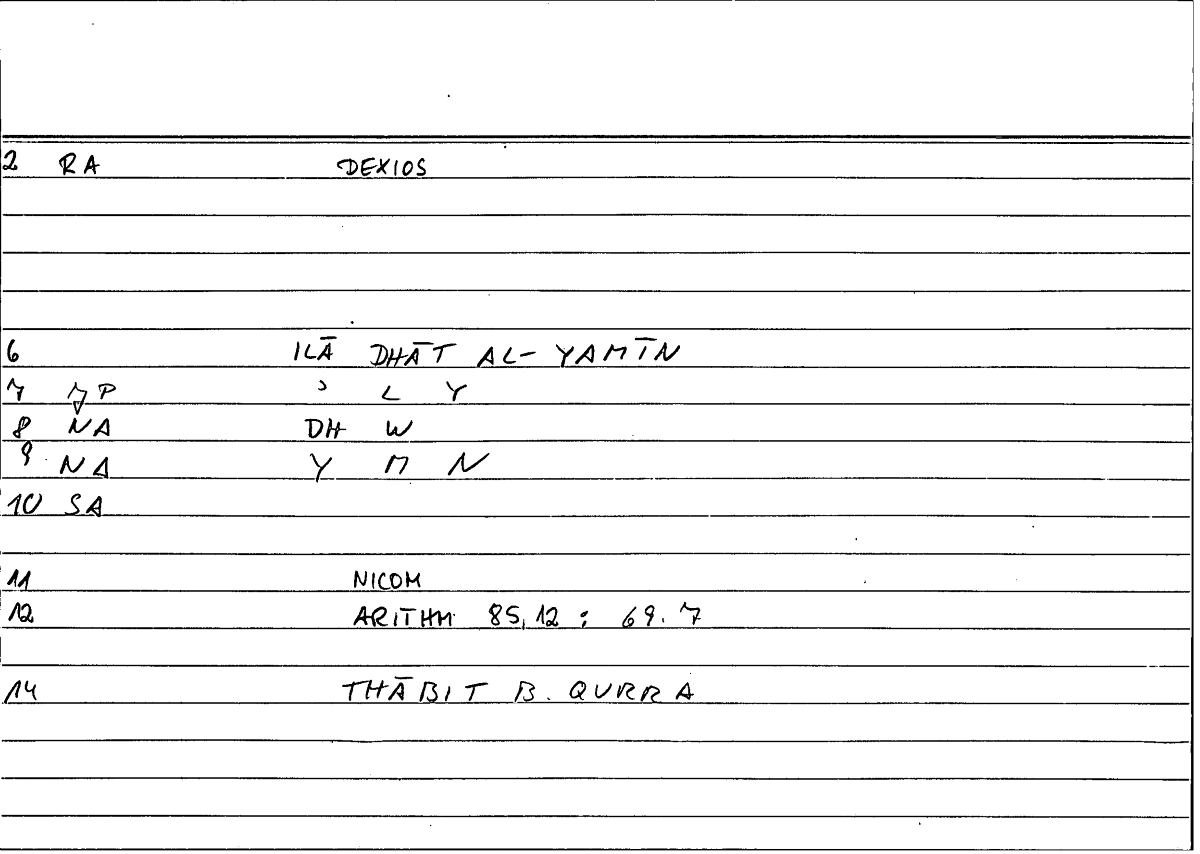 2 RA DEXIOS
6 ILĀ DHĀT AL-YAMĪN
7 7P ʾ L Y
8 NA DH W
9 NA Y M N
10 SA
11 NICOM
12 ARITHM 85,12 : 69.7
14 THĀBIT B. QURRA